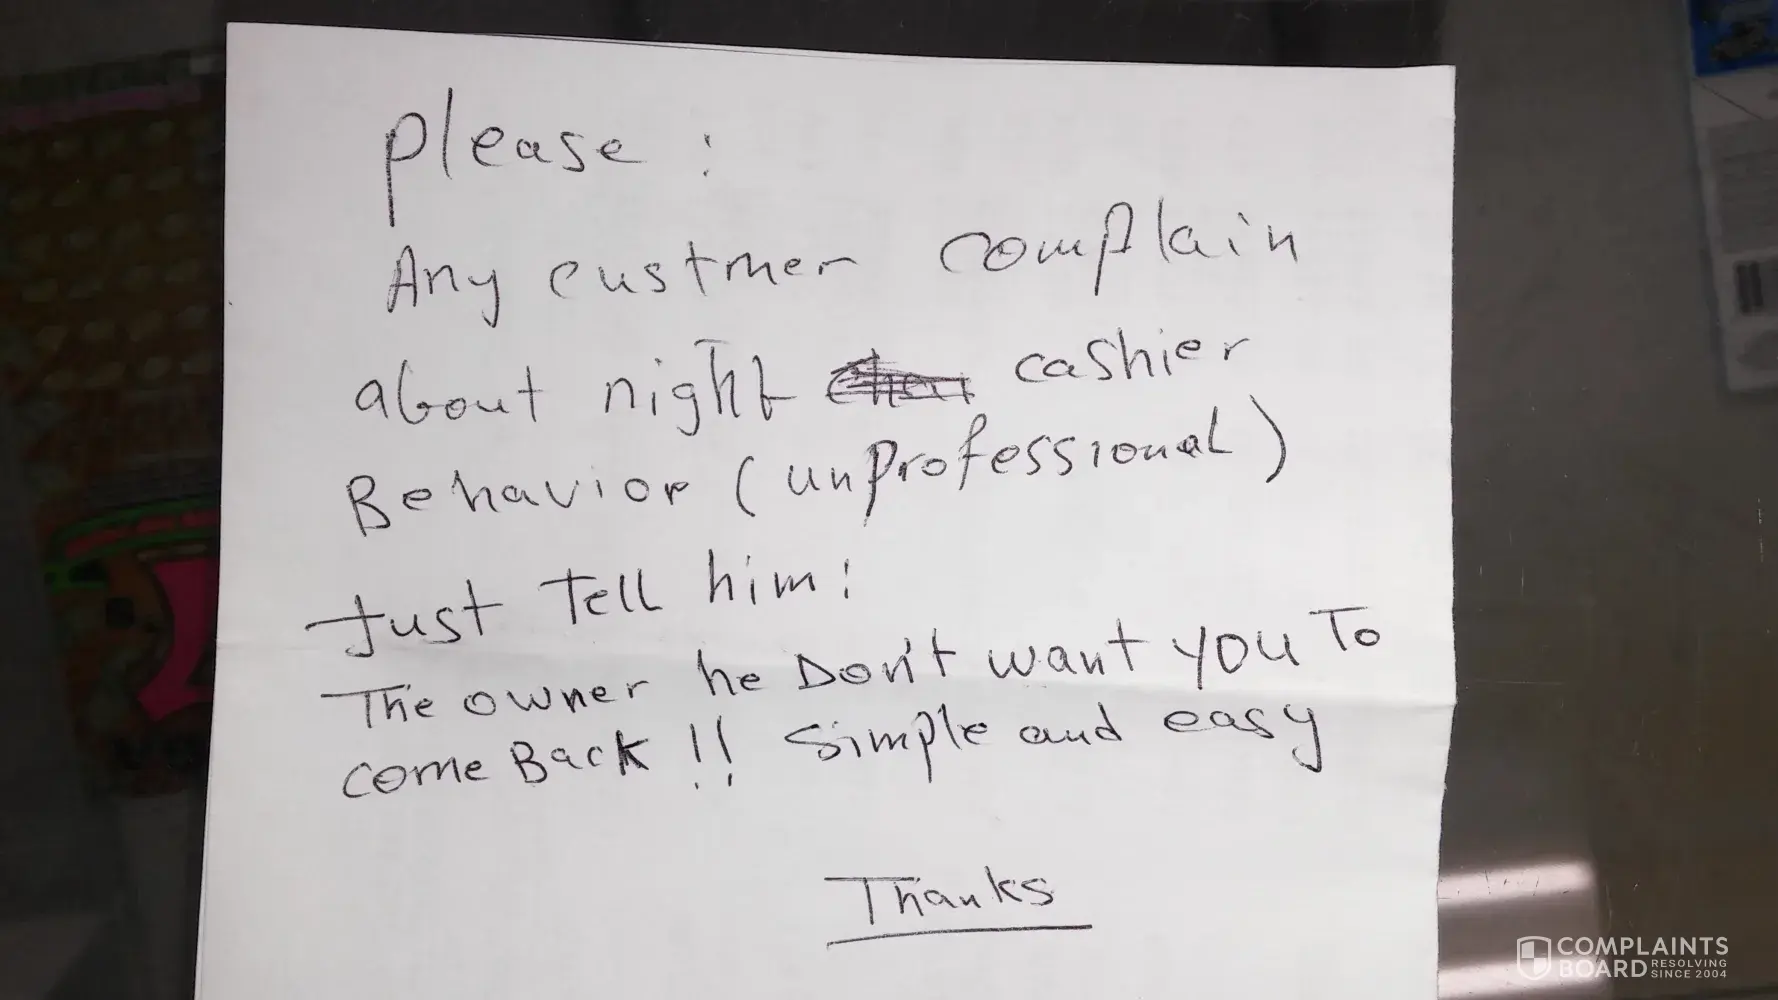 Please :
Any custmer complain
about night cashier
Behavior (unprofessional)
Just Tell him:
The owner he Don't want you To
come Back !! simple and easy
Thanks
COMPLAINTS
BOARD RESOLVING
SINCE 2004